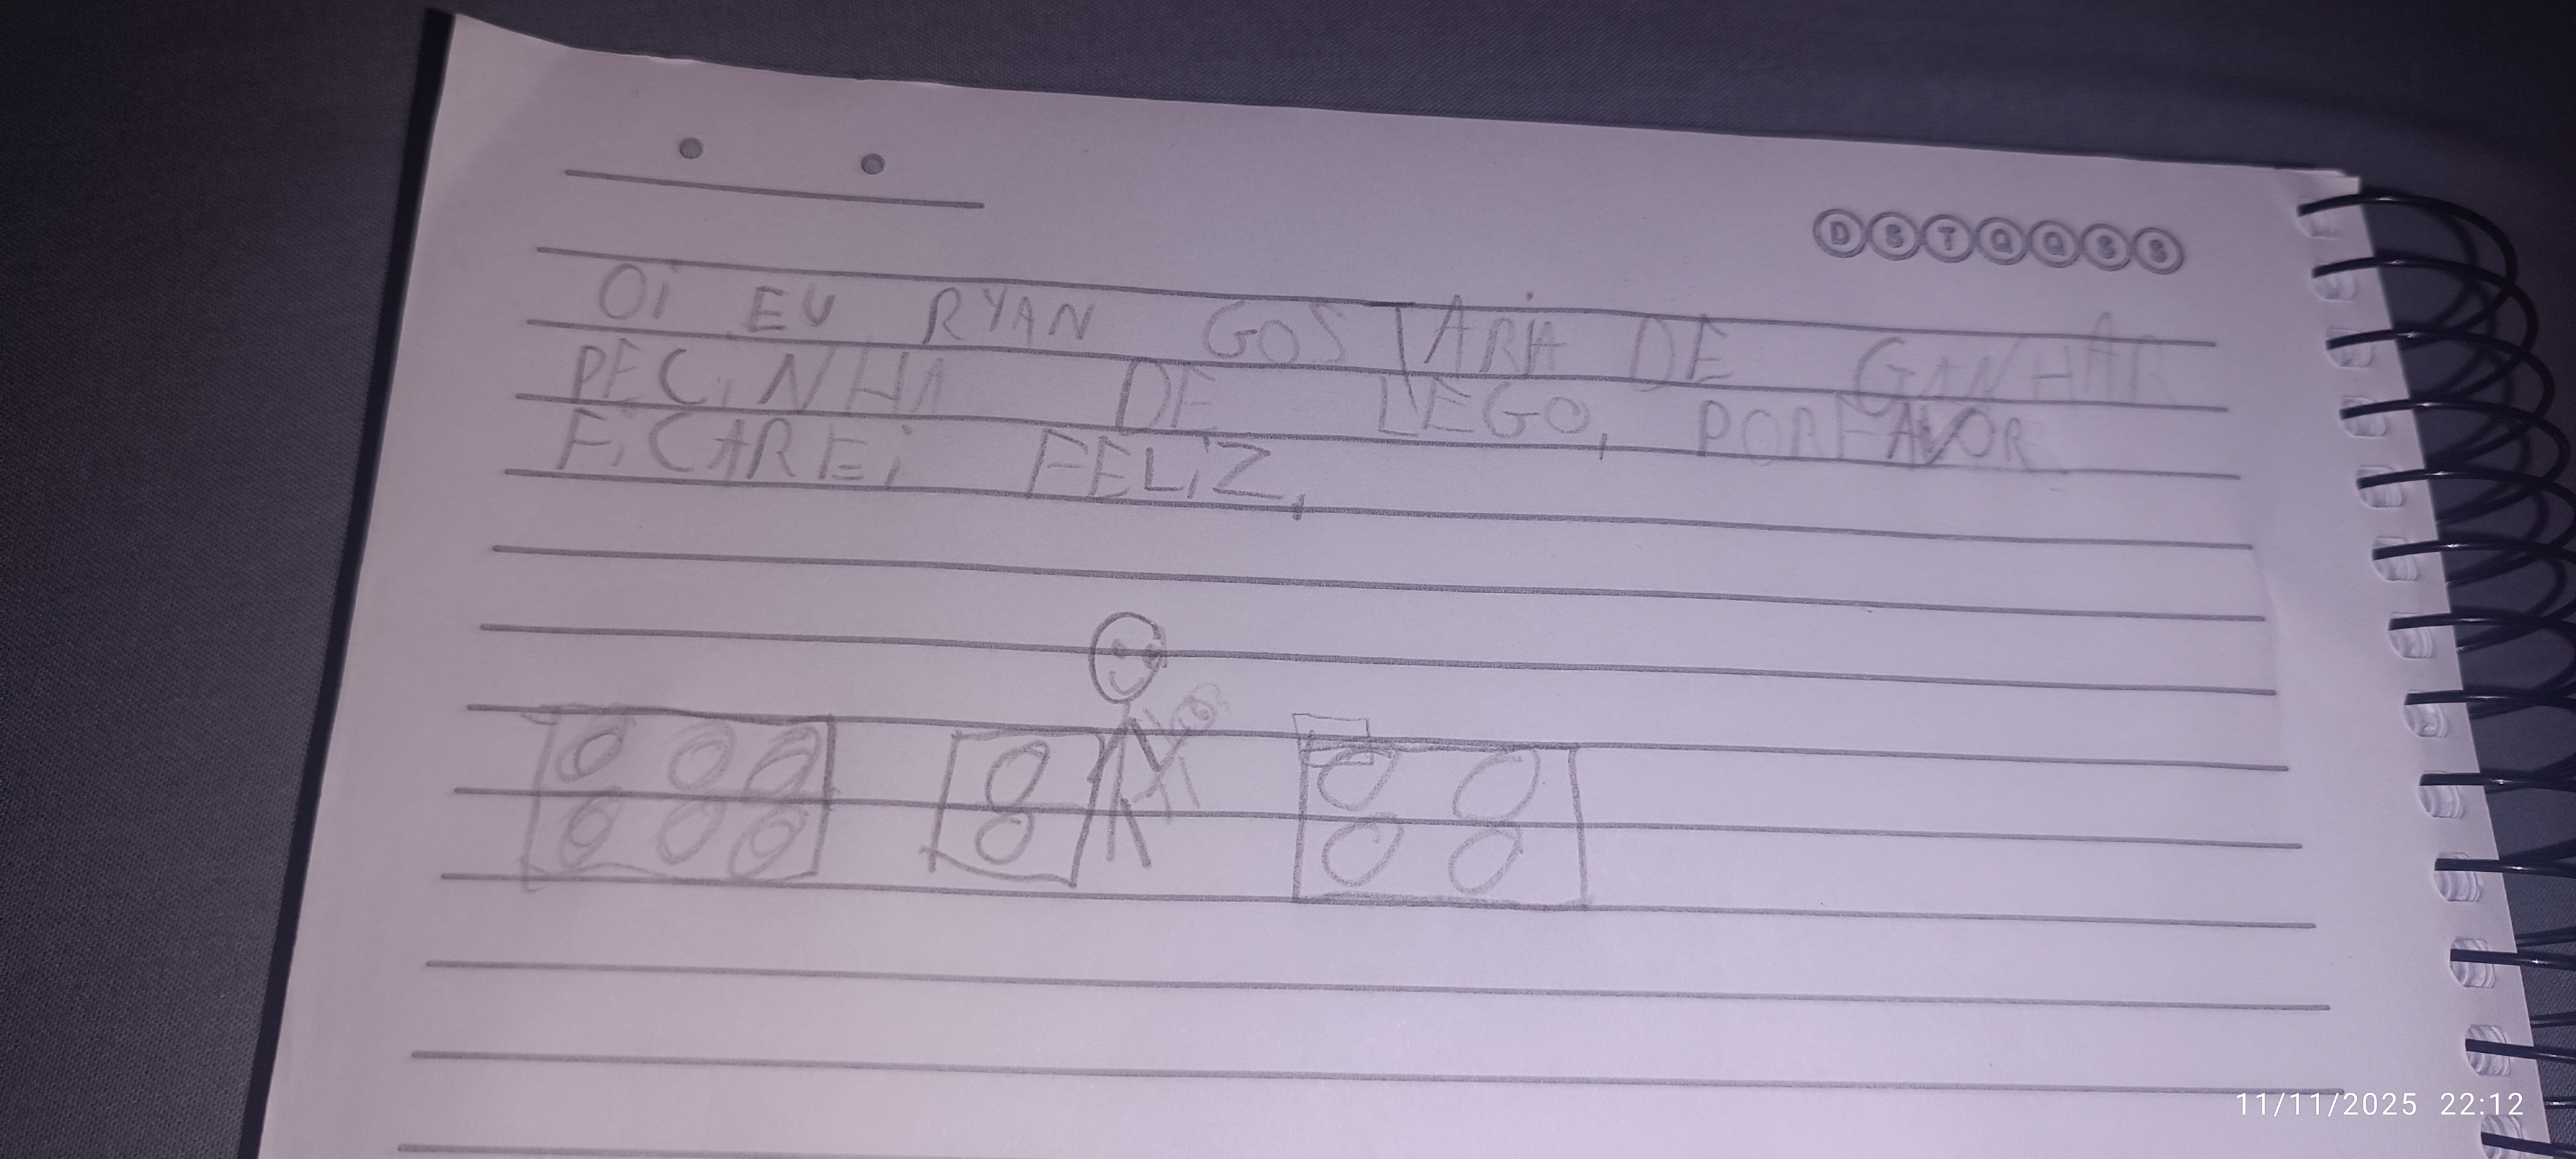 D S T Q Q S S
Oi EU RYAN GOSTARIA DE GANHAR
PECiNHA DE LEGO, PORFAVOR
FiCAREi FELiZ,
11/11/2025 22:12